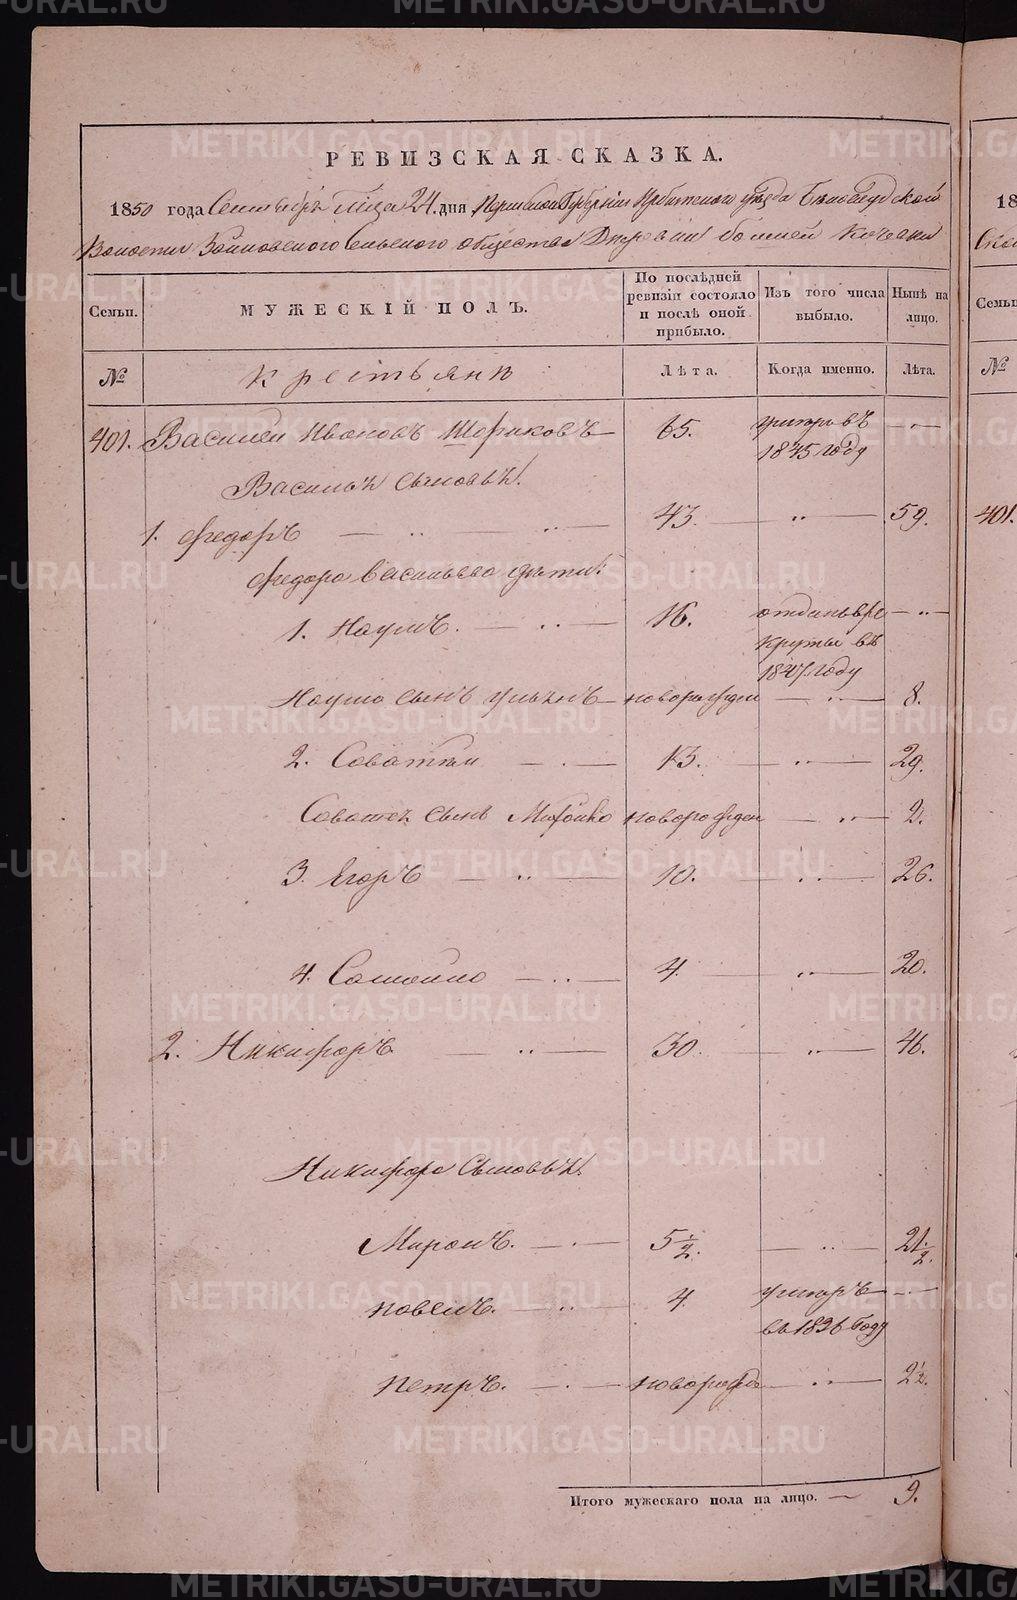 РЕВИЗСКАЯ СКАЗКА.
1850 года Сентября Мца 24. дня Пермской Губернии Ирбитского уезда Белослудской
Волости Зайковского Сельского общества Деревни большей Кочевки
Семьи. МУЖЕСКІЙ ПОЛЪ. По послѣдней ревизіи состояло и послѣ оной прибыло. Изъ того числа выбыло. Нынѣ на лицо.
№ крестьяне Лѣта. Когда именно. Лѣта.
401. Василей Ивановъ Шориковъ 65. умеръ въ 1845 году — " —
Василья Сыновья:
1. Федоръ — " — 43. " — 59.
Федора Васильева дѣти:
1. Наумъ. — " — 16. отданъ в рекруты въ 1847 году — " —
Наума сынъ Ульянъ — новорожден — " — 8.
2. Саватей — " — 13. — " — 29.
Саватея сынъ Михайло новорожден — " — 2.
3. Егоръ — " — 10. — " — 26.
4. Самойло — " — 4. " — 20.
2. Никифоръ — " — 30. " — 46.
Никифора Сыновья:
Миронъ. — " — 5 1/2. — " — 21 1/2.
Павелъ. — " — 4. умеръ въ 1836 году — " —
Петръ. — " — новорожде — " — 2 1/2.
Итого мужескаго пола на лицо. — 9.
METRIKI.GASO-URAL.RU